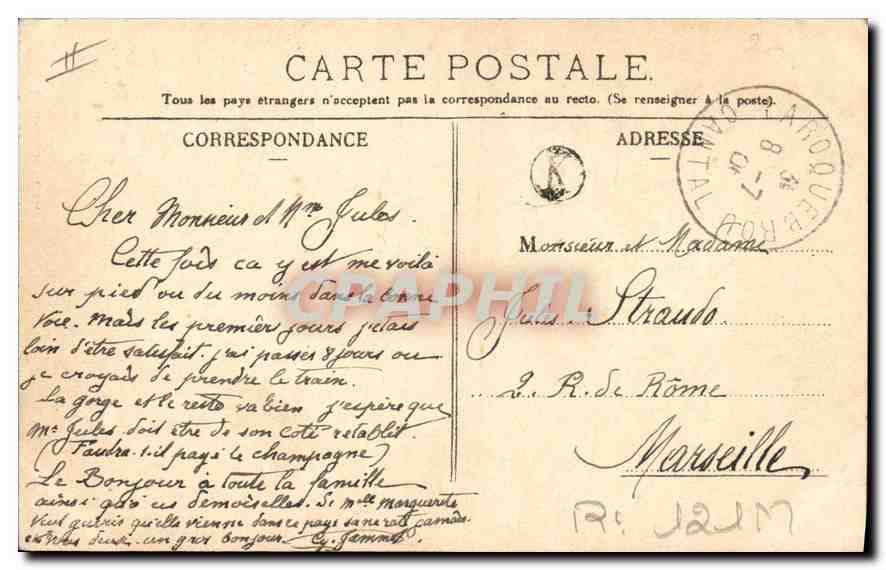 CARTE POSTALE.
Tous les pays étrangers n'acceptent pas la correspondance au recto. (Se renseigner à la poste).
CORRESPONDANCE
Cher Monsieur et Mme Jules.
Cette fois ca y est me voilà
sur pied ou du moins dans la bonne
voie. Mais les premiers jours j'etais
loin d'être satisfait. j'ai passés 8 jours ou
je croyais de prendre le train.
La gorge et le reste va bien j'espère que
Mr Jules doit être de son coté retablit.
(Faudra-t-il payé le champagne)
Le Bonjour à toute la famille
ainsi qu'à ces demoiselles. Si Melle Marguerite
veut guerir qu'elle vienne dans ce pays sa ne rate jamais.
vous deux un gros bonjour.
ADRESSE
K
LAROQUEBROU
CANTAL
8
-7
Monsieur et Madame
Jules Straudo.
2. R. de Rôme
Marseille
CPAPHIL
121M